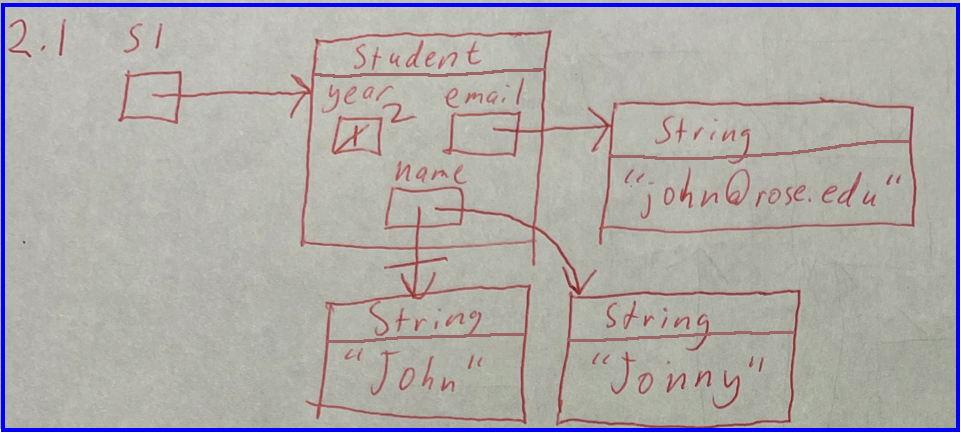 2.1 S1
Student
year email
1 2
name
String
"john@rose.edu"
String
"John"
String
"Jonny"